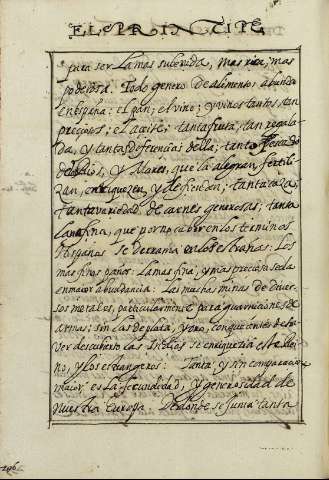 EL PRINCIPE
para ser la mas subenida, mas rica, mas
poderosa. Todo genero de alimentos abunda
en España: el pan; el vino; y vinos tantos, tan
preciosos; el aceite; tanta fruta, tan regala-
da, y tantas diferencias della; tanto Pescado
de los Rios, y Mares, que la alegran, fertili-
zan, enriquezen y defienden; tanta caza,
tanta variedad de carnes generosas; tanta
lana fina, que por no caber en los terminos
Hispanos se derrama en los estraños: Los
mas finos paños: la mas fina, y mas preciosa seda
en maior abundancia. Las muchas minas de diver-
sos metales, particularmente para guarniciones de
Armas; sin las de plata, y oro, con que antes de ha-
ver descubierto las Indias se enriquezia este Rei-
no, y los estrangeros: Tanta y sin comparacion
maior es la fecundidad, y generosidad de
nuestra Europa. De donde se junta tanta